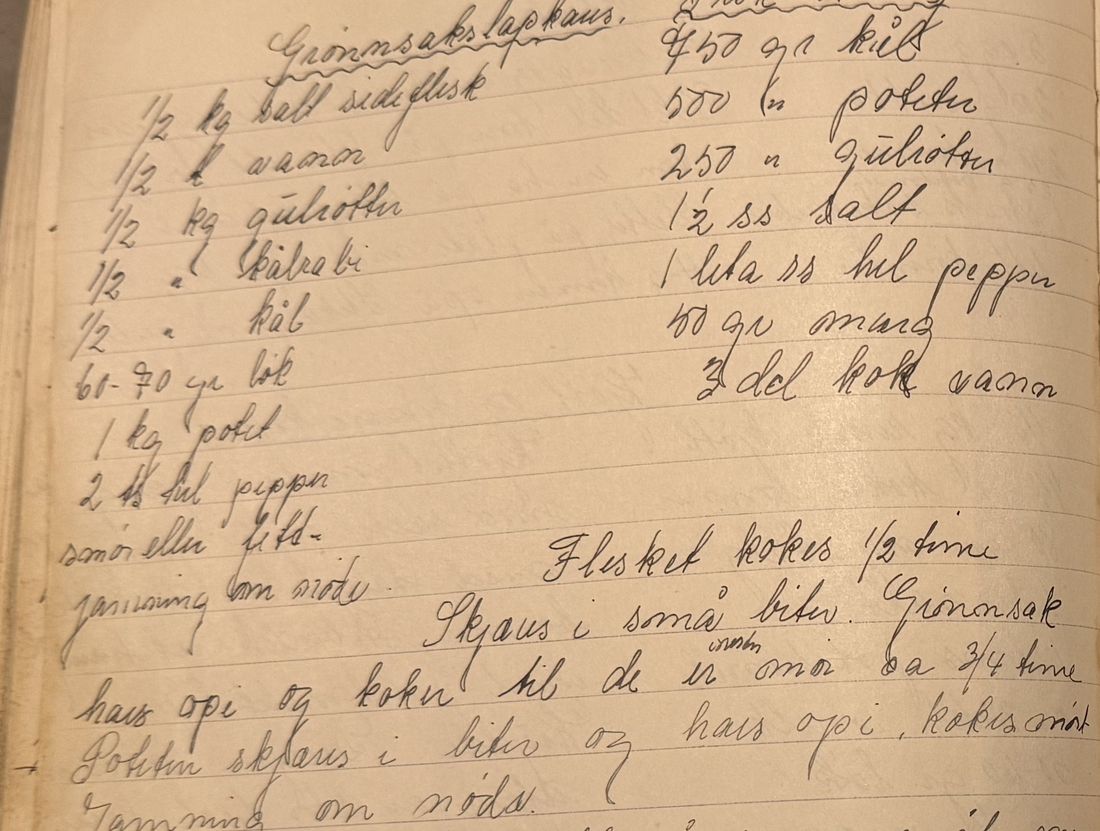 Grønnsakslapkaus.
1/2 kg salt sideflesk
1/2 l vann
1/2 kg gulrøtter
1/2 " kålrabi
1/2 " kål
60-70 gr løk
1 kg potet
2 ts hel pepper
smør eller fett-
jamning om nødv.
750 gr kål
500 " poteter
250 " gulrøtter
1 1/2 ss salt
1 lita ss hel pepper
50 gr marg
3 del kok vann
Flesket kokes 1/2 time
Skjæres i små biter. Grønnsak
haes opi og koker til de er nesten mør ca 3/4 time
Poteten skjæres i biter og haes opi, kokes mørt
Jamning om nødv.